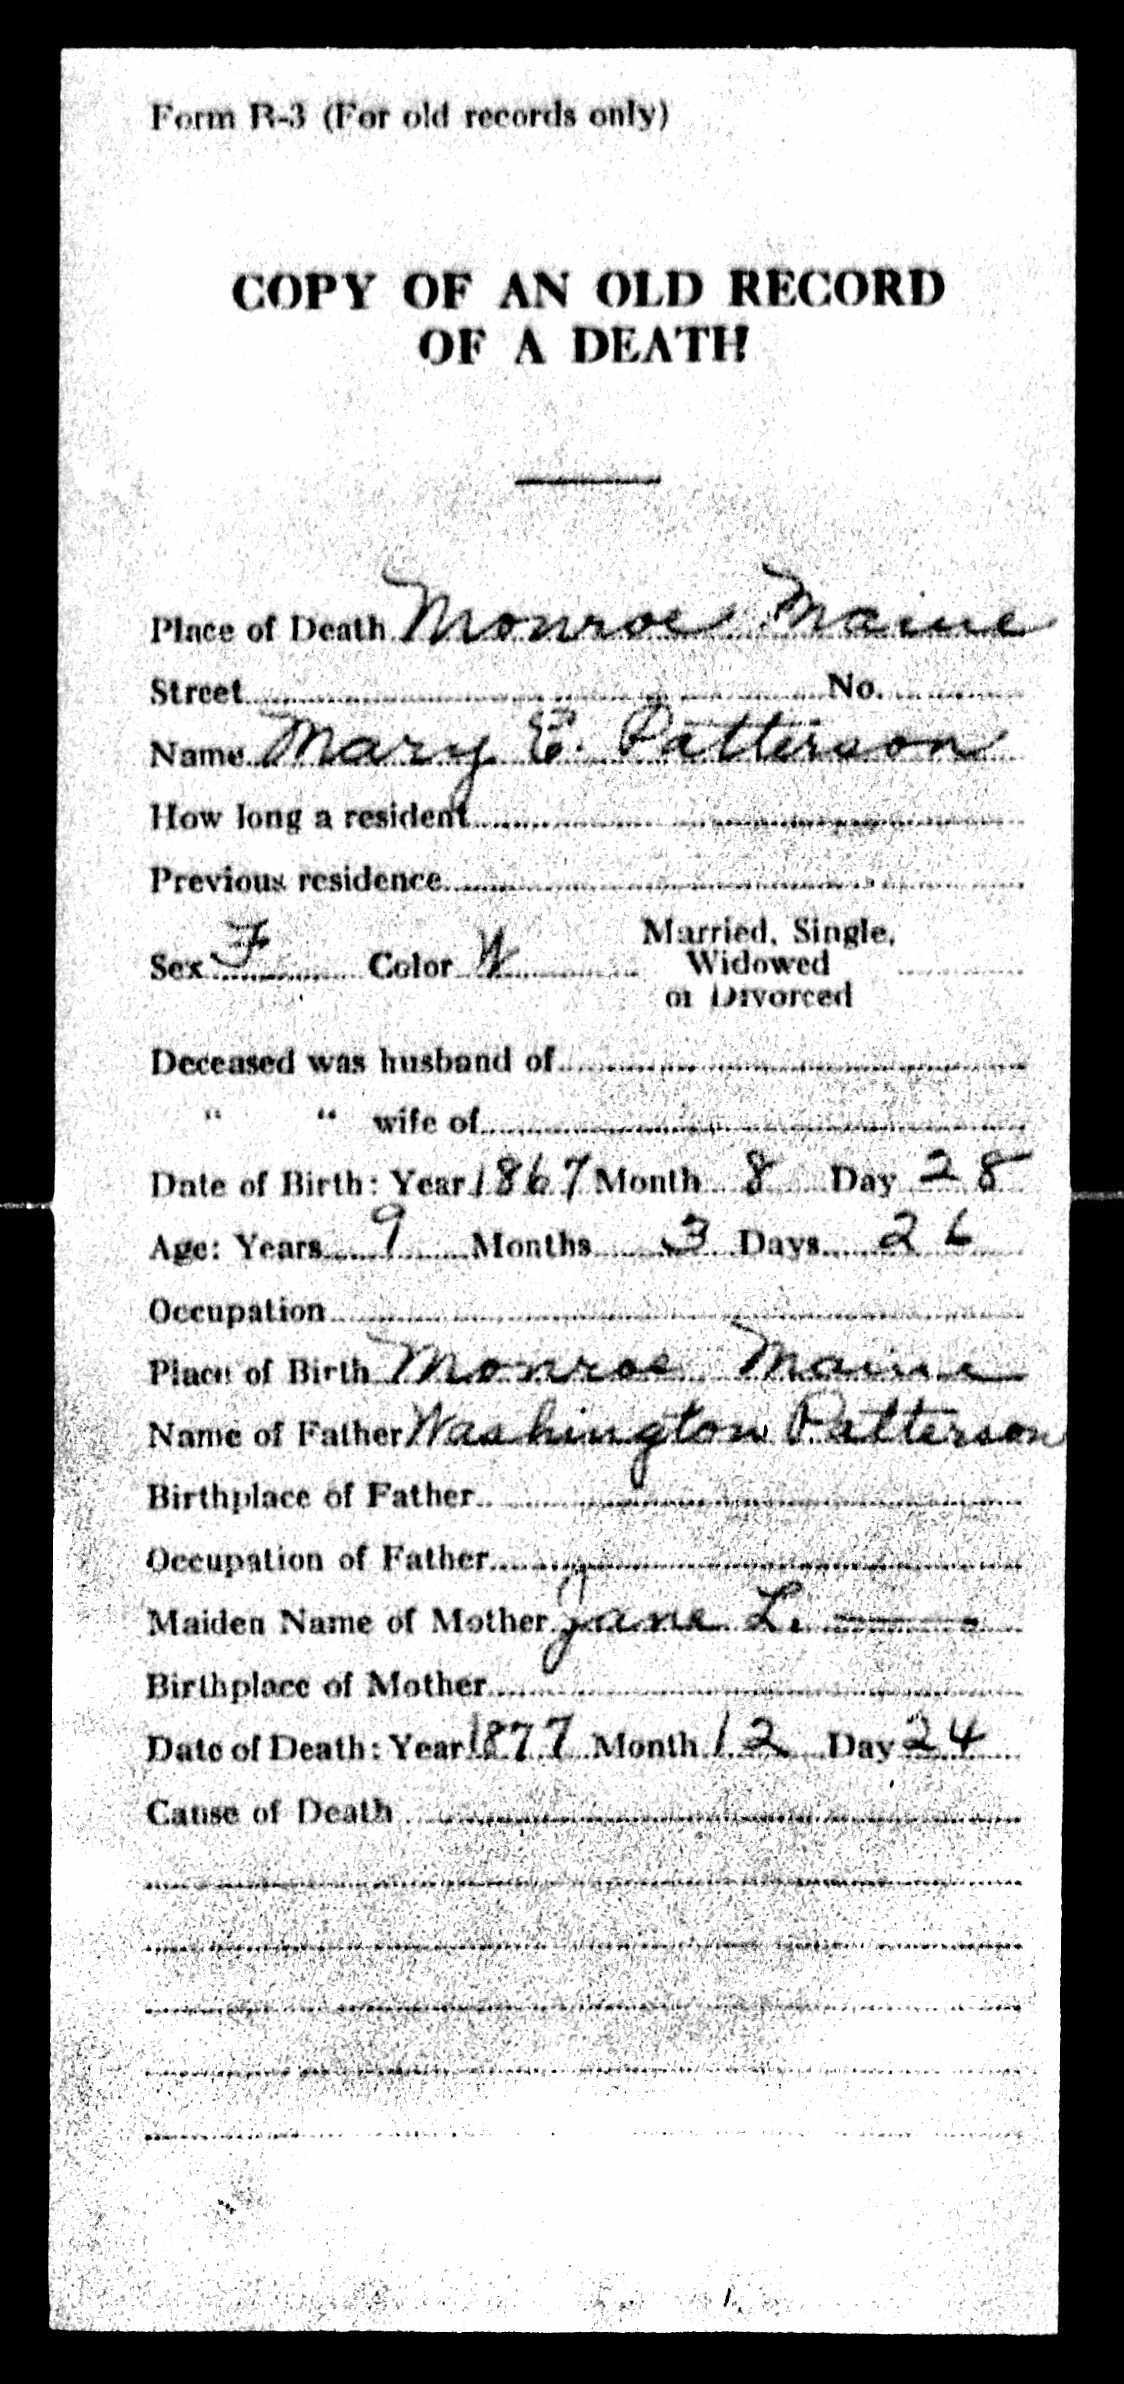 Form R-3 (For old records only)
COPY OF AN OLD RECORD
OF A DEATH
Place of Death Monroe Maine
Street No.
Name Mary E. Patterson
How long a resident
Previous residence
Sex F Color W Married, Single,
Widowed
or Divorced
Deceased was husband of
" " wife of
Date of Birth: Year 1867 Month 8 Day 28
Age: Years 9 Months 3 Days 26
Occupation
Place of Birth Monroe Maine
Name of Father Washington Patterson
Birthplace of Father
Occupation of Father
Maiden Name of Mother Jane L. ——
Birthplace of Mother
Date of Death: Year 1877 Month 12 Day 24
Cause of Death